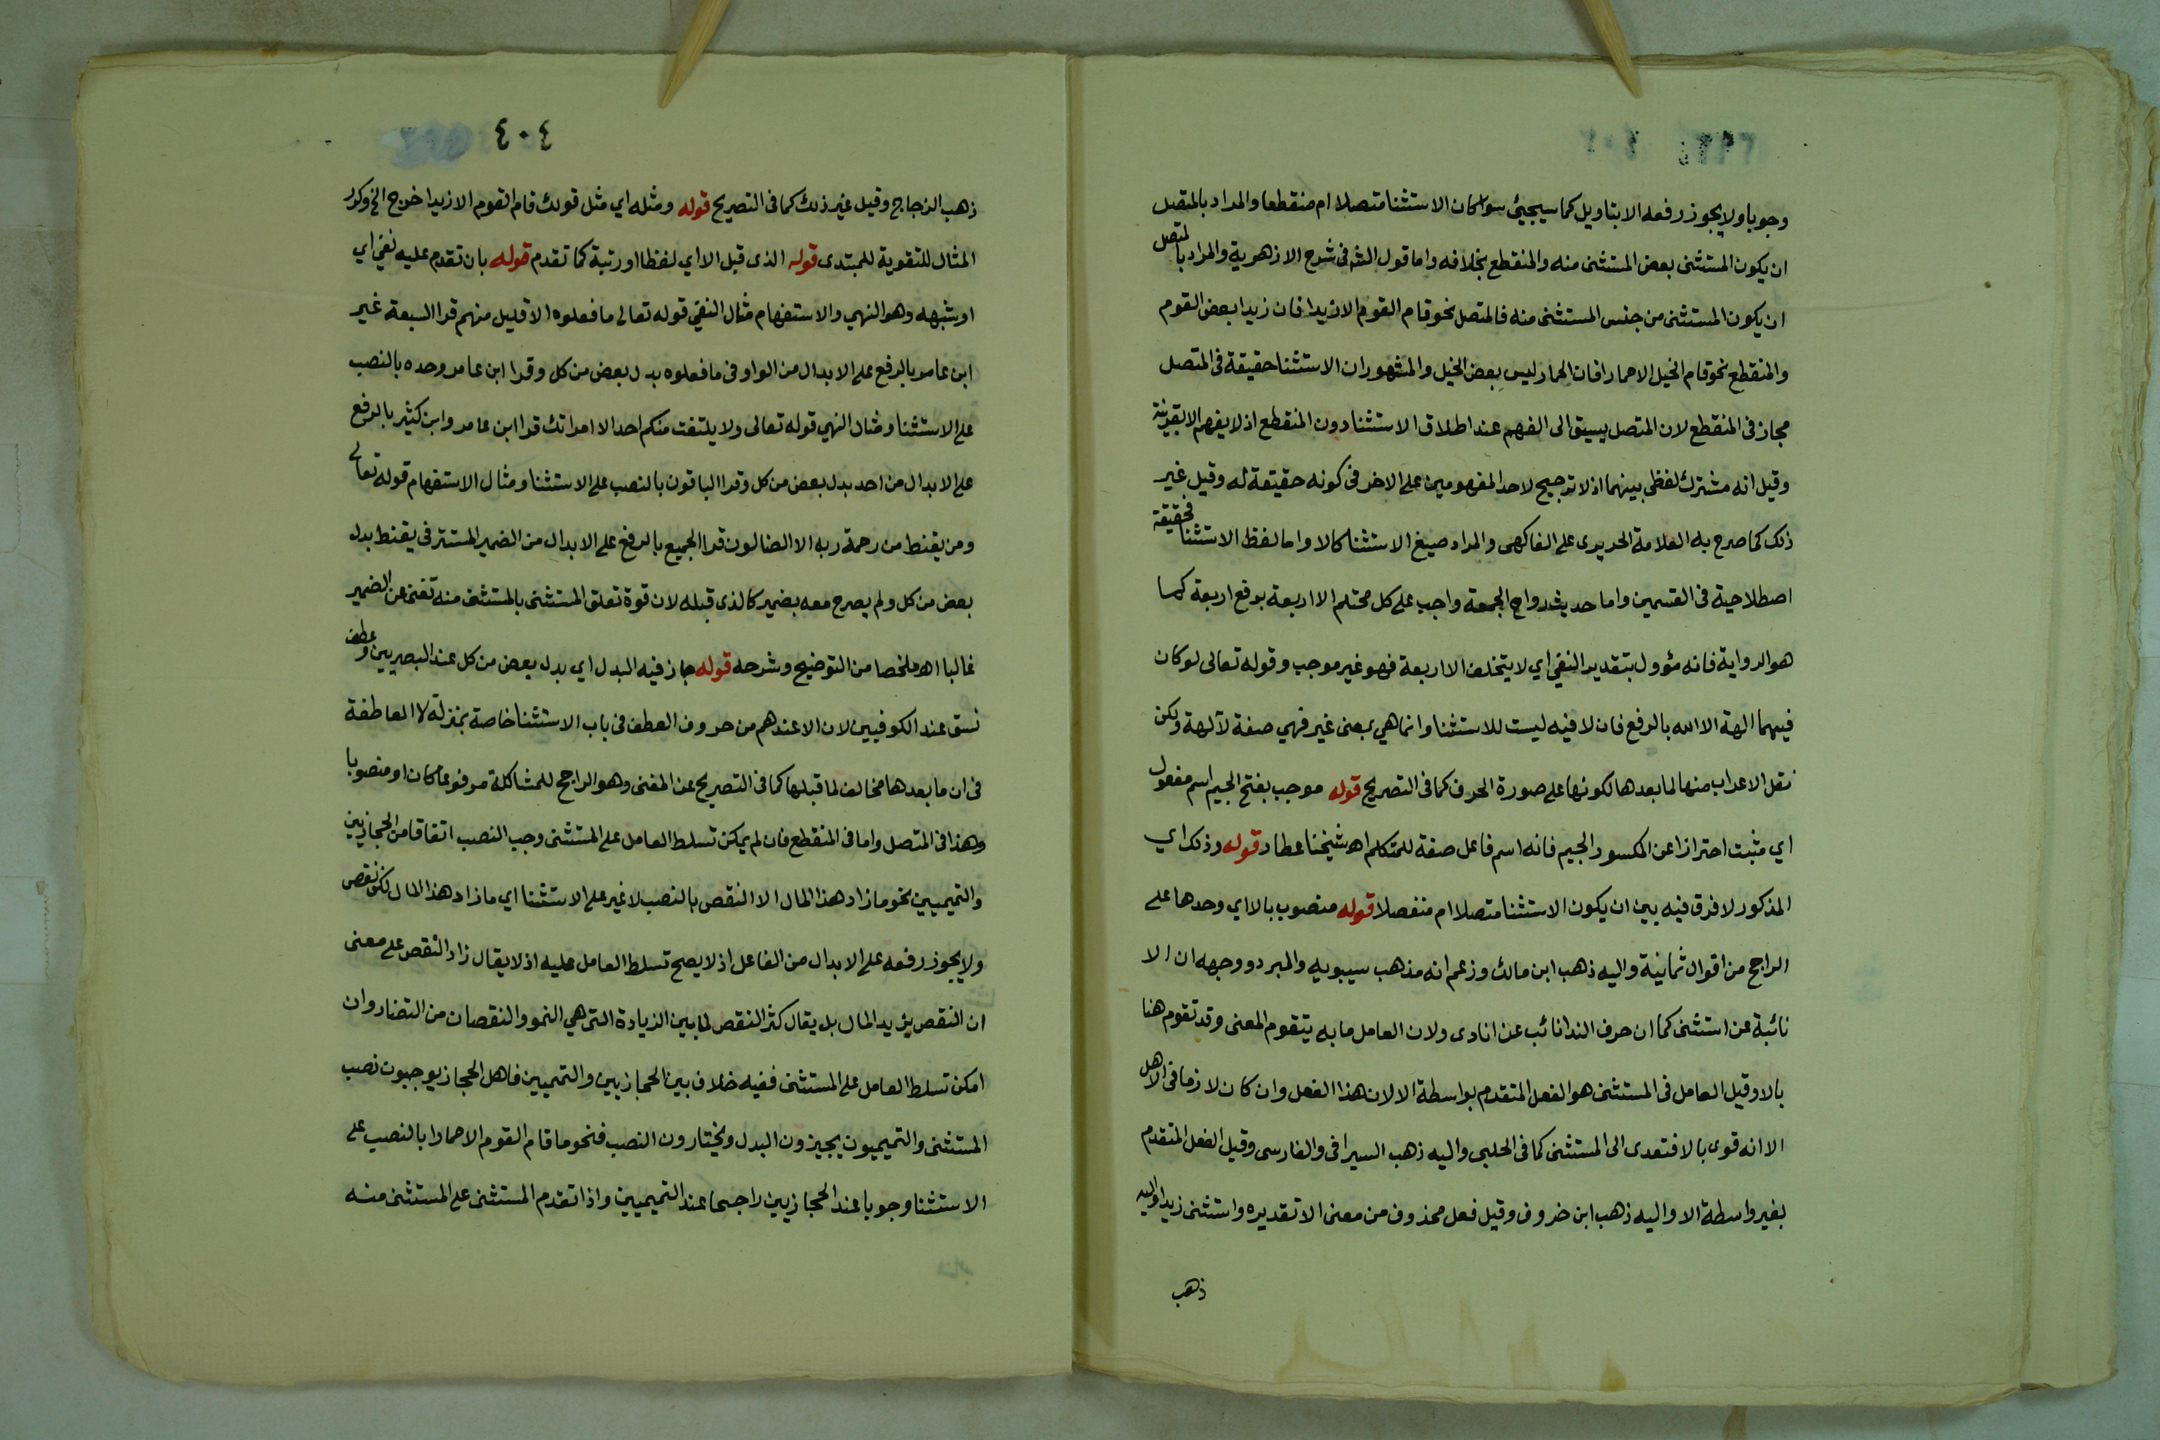 وجوبا ولا يجوز رفعه الا بتاويل كما سيجيئ سواكان الاستثنا متصلا ام منقطعا والمراد بالمتصل
ان يكون المستثنى بعض المستثنى منه والمنقطع بخلافه واما قول الش فى شرح الازهرية والمراد بالمتصل
ان يكون المستثنى من جنس المستثنى منه فالمتصل نحو قام القوم الا زيدا فان زيدا بعض القوم
والمنقطع نحو قام الخيل الا حمارا فان الحمار ليس بعض الخيل والمشهور ان الاستثنا حقيقة فى المتصل
مجاز فى المنقطع لان المتصل يسبق الى الفهم عند اطلاق الاستثنا دون المنقطع اذ لا يفهم الا بقرينة
وقيل انه مشترك لفظى بينهما اذ لا ترجيح لاحد المفهومين على الاخر فى كونه حقيقة له وقيل غير
ذلك كما صرح به العلامة الحريرى على الفاكهى والمراد صيغ الاستثنا كالا واما لفظ الاستثنا فحقيقة
اصطلاحية فى القسمين واما حديث رواح الجمعة واجب على كل محتلم الا اربعة برفع اربعة كما
هو الرواية فانه مؤول بتقدير النفي اي لا يتخلف الا اربعة فهو غير موجب وقوله تعالى لوكان
فيهما الهة الا الله بالرفع فان لا فيه ليست للاستثنا وانما هي بمعنى غير فهي صفة لآلهة ولكن
نقل الاعراب منها لما بعدها لكونها على صورة الحرف كما فى التصريح قوله موجب بفتح الجيم اسم مفعول
اي مثبت احترازا عن المكسور الجيم فانه اسم فاعل صفة للمتكلم اه شيخنا عطار قوله وذلك اي
المذكور لا فرق فيه بين ان يكون الاستثنا متصلا ام منفصلا قوله منصوب بالا اي وحدها على
الراجح من اقوال ثمانية واليه ذهب ابن مالك وزعم انه مذهب سيبويه والمبرد ووجهه ان الا
نائبة عن استثنى كما ان حرف الندا نائب عن انادى ولان العامل ما به يتقوم المعنى وقد تقوم هنا
بالا وقيل العامل فى المستثنى هو الفعل المتقدم بواسطة الا لان هذا الفعل وان كان لازما فى الاهل
الا انه قوى بالا فتعدى الى المستثنى كما فى الحلبى واليه ذهب السيرافى والفارسى وقيل الفعل المتقدم
بغير واسطة الا واليه ذهب ابن خروف وقيل فعل محذوف من معنى الا تقديره واستثنى زيدا واليه
ذهب
٤٠٤
ذهب الزجاج وقيل غير ذلك كما فى التصريح قوله ومثله اي مثل قولك قام القوم الا زيدا خرج الخ وكرر
المثال للتقوية للمبتدى قوله الذى قبل الا اي لفظا او رتبة كما تقدم قوله بان تقدم عليه نفي اي
او شبهه وهو النهي والاستفهام مثال النفي قوله تعالى ما فعلوه الا قليل منهم قرا السبعة غير
ابن عامر بالرفع على الابدال من الواو فى ما فعلوه بدل بعض من كل وقرا ابن عامر وحده بالنصب
على الاستثنا ومثال النهي قوله تعالى ولا يلتفت منكم احد الا امراتك قرا ابن عامر وابن كثير بالرفع
على الابدال من احد بدل بعض من كل وقرا الباقون بالنصب على الاستثنا ومثال الاستفهام قوله تعالى
ومن يقنط من رحمة ربه الا الضالون قرا الجميع بالرفع على الابدال من الضمير المستتر فى يقنط بدل
بعض من كل ولم يصرح معه بضمير كالذى قبله لان قوة تعلق المستثنى بالمستثنى منه تغنى عن الضمير
غالبا اه ملخصا من التوضيح وشرحه قوله جاز فيه البدل اي بدل بعض من كل عند البصريين وعطف
نسق عند الكوفيين لان الا عندهم من حروف العطف فى باب الاستثنا خاصة بمنزلة لا العاطفة
فى ان ما بعدها مخالف لما قبلها كما فى التصريح عن المغنى وهو الراجح للمشاكلة مرفوعا كان او منصوبا
وهذا فى المتصل واما فى المنقطع فان لم يمكن تسلط العامل على المستثنى وجب النصب اتفاقا من الحجازيين
والتميميين نحو ما زاد هذا المال الا النقص بالنصب لا غير على الاستثنا اي ما زاد هذا المال لكن نقص
ولا يجوز رفعه على الابدال من الفاعل اذ لا يصح تسلط العامل عليه اذ لا يقال زاد النقص على معنى
ان النقص يزيد المال بل يقال كثر النقص لما بين الزيادة التى هي النمو والنقصان من التضاد وان
امكن تسلط العامل على المستثنى ففيه خلاف بين الحجازيين والتميميين فاهل الحجاز يوجبون نصب
المستثنى والتميميون يجيزون البدل ويختارون النصب فنحو ما قام القوم الا حمارا بالنصب على
الاستثنا وجوبا عند الحجازيين راجحا عند التميميين واذا تقدم المستثنى على المستثنى منه